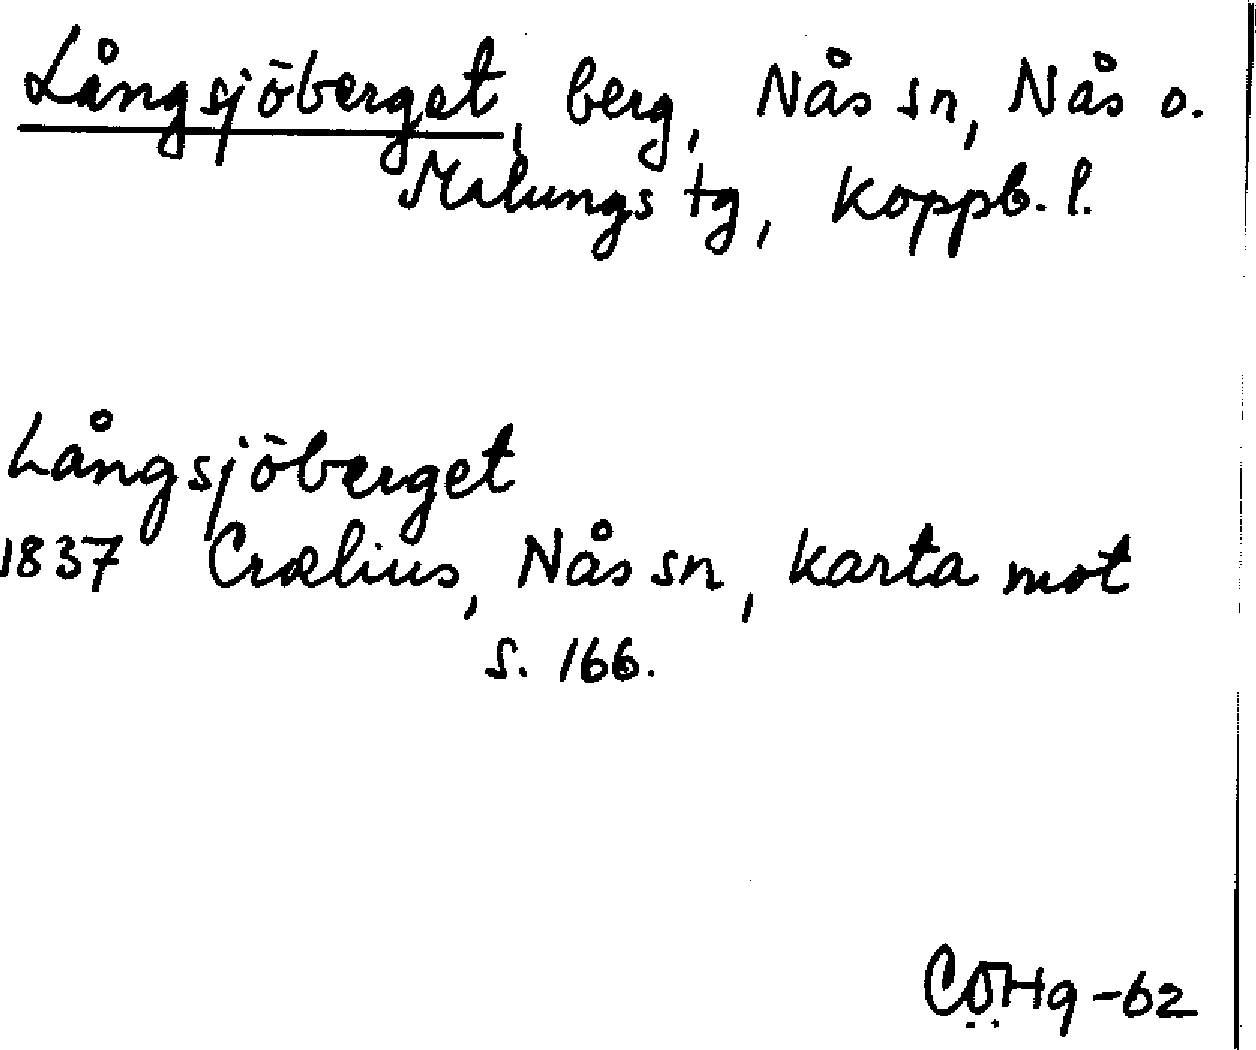 Långsjöberget, berg, Nås sn, Nås o.
Malungs tg, Koppb. l.
Långsjöberget
1837 Crælius, Nås sn, karta mot
s. 166.